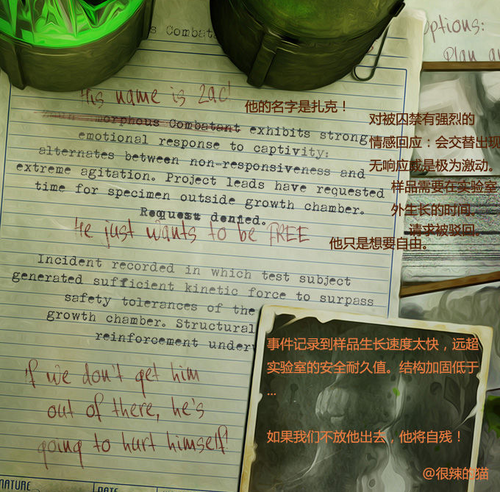 s Combatant
Options:
Plan
His name is Zac!
他的名字是扎克！
orphous Combatant exhibits strong
emotional response to captivity:
alternates between non-responsiveness and
extreme agitation. Project leads have requested
time for specimen outside growth chamber.
Request denied.
对被囚禁有强烈的
情感回应：会交替出现
无响应或是极为激动。
样品需要在实验室
外生长的时间。
请求被驳回。
He just wants to be FREE
他只是想要自由。
Incident recorded in which test subject
generated sufficient kinetic force to surpass
safety tolerances of the
growth chamber. Structural
reinforcement underw
if we don't get him
out of there, he's
going to hurt himself
事件记录到样品生长速度太快，远超
实验室的安全耐久值。结构加固低于
...
如果我们不放他出去，他将自残！
@很辣的猫
NATURE
DATE